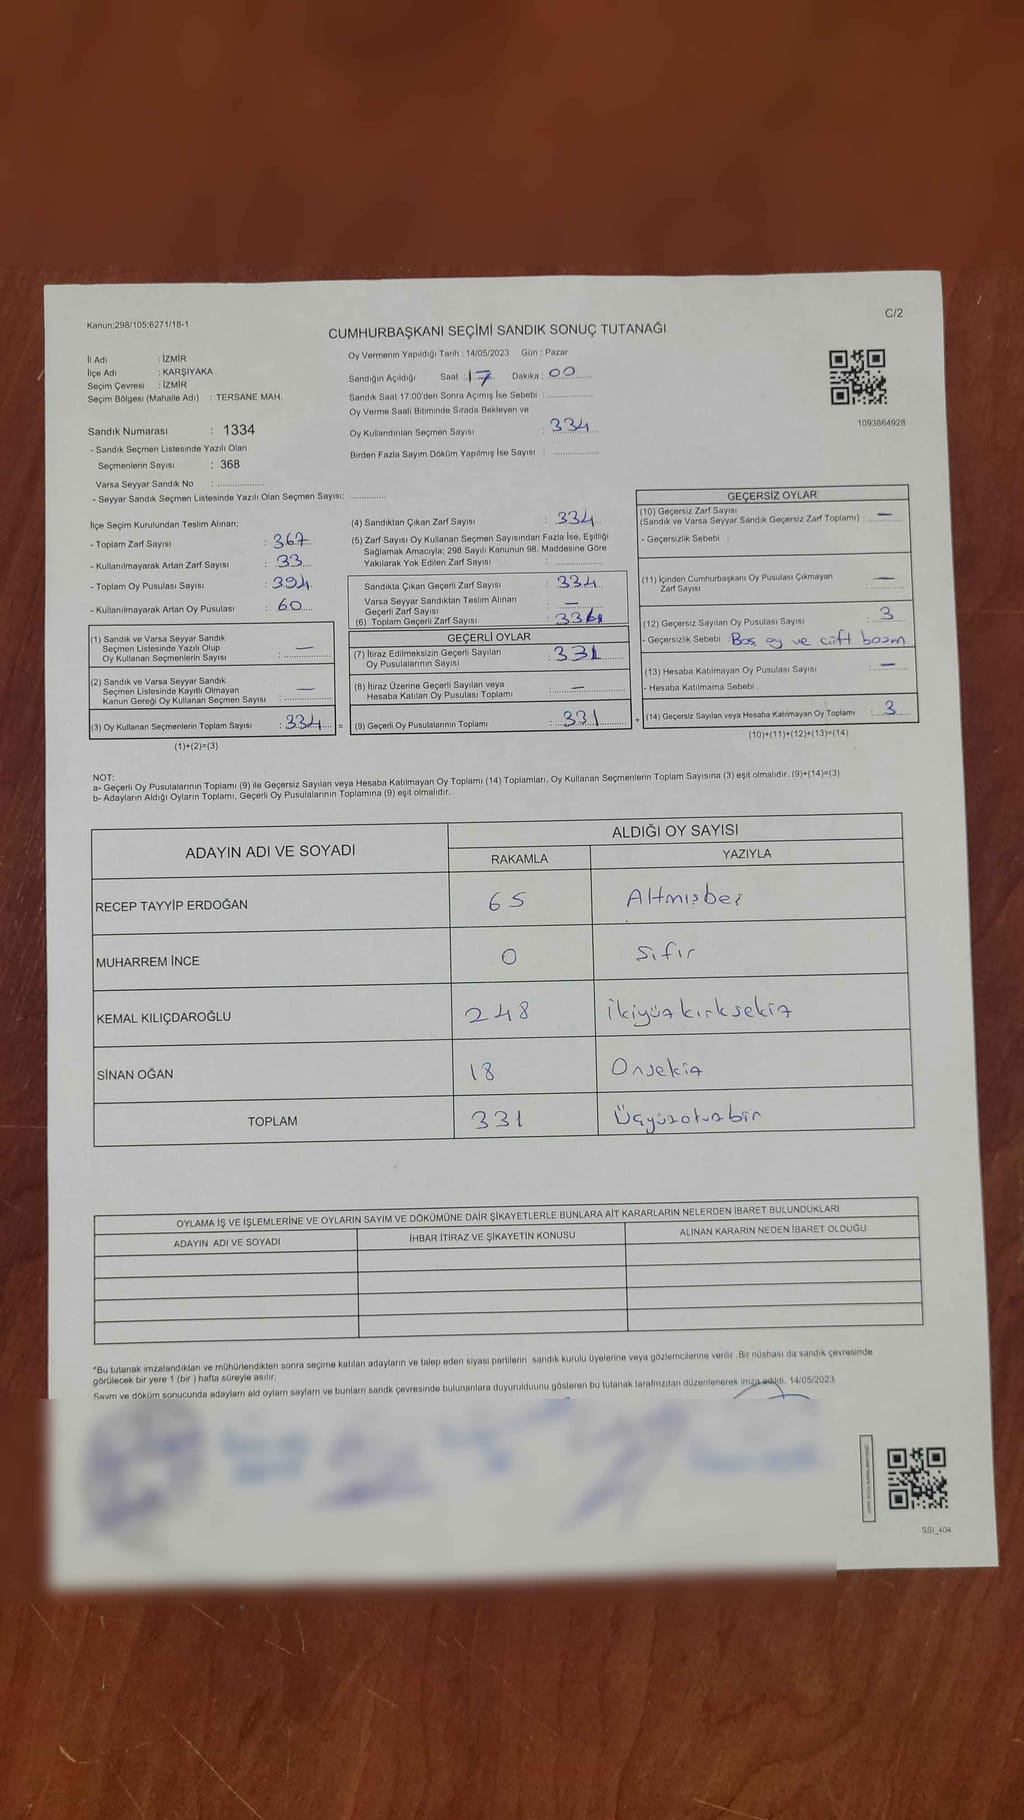 Kanun;298/105;6271/18-1
C/2
CUMHURBAŞKANI SEÇİMİ SANDIK SONUÇ TUTANAĞI
İl Adı : İZMİR
İlçe Adı : KARŞIYAKA
Seçim Çevresi : İZMİR
Seçim Bölgesi (Mahalle Adı) : TERSANE MAH.
Sandık Numarası : 1334
- Sandık Seçmen Listesinde Yazılı Olan
Seçmenlerin Sayısı : 368
Varsa Seyyar Sandık No : ..................
- Seyyar Sandık Seçmen Listesinde Yazılı Olan Seçmen Sayısı: .............
Oy Vermenin Yapıldığı Tarih : 14/05/2023 Gün : Pazar
Sandığın Açıldığı Saat : 17 Dakika : 00
Sandık Saat 17:00'den Sonra Açımış İse Sebebi : ..................
Oy Verme Saati Bitiminde Sırada Bekleyen ve
Oy Kullandırılan Seçmen Sayısı : 334
Birden Fazla Sayım Döküm Yapılmış İse Sayısı : ..................
1093864928
İlçe Seçim Kurulundan Teslim Alınan;
- Toplam Zarf Sayısı : 367
- Kullanılmayarak Artan Zarf Sayısı : 33
- Toplam Oy Pusulası Sayısı : 394
- Kullanılmayarak Artan Oy Pusulası : 60
(1) Sandık ve Varsa Seyyar Sandık
Seçmen Listesinde Yazılı Olup
Oy Kullanan Seçmenlerin Sayısı : —
(2) Sandık ve Varsa Seyyar Sandık
Seçmen Listesinde Kayıtlı Olmayan
Kanun Gereği Oy Kullanan Seçmen Sayısı : —
(3) Oy Kullanan Seçmenlerin Toplam Sayısı : 334 =
(1)+(2)=(3)
(4) Sandıktan Çıkan Zarf Sayısı : 334
(5) Zarf Sayısı Oy Kullanan Seçmen Sayısından Fazla İse, Eşitliği
Sağlamak Amacıyla; 298 Sayılı Kanunun 98. Maddesine Göre
Yakılarak Yok Edilen Zarf Sayısı : ..................
Sandıkta Çıkan Geçerli Zarf Sayısı : 334
Varsa Seyyar Sandıktan Teslim Alınan
Geçerli Zarf Sayısı : —
(6) Toplam Geçerli Zarf Sayısı : 334
GEÇERLİ OYLAR
(7) İtiraz Edilmeksizin Geçerli Sayılan
Oy Pusulalarının Sayısı : 331
(8) İtiraz Üzerine Geçerli Sayılan veya
Hesaba Katılan Oy Pusulası Toplamı : —
(9) Geçerli Oy Pusulalarının Toplamı : 331 +
GEÇERSİZ OYLAR
(10) Geçersiz Zarf Sayısı
(Sandık ve Varsa Seyyar Sandık Geçersiz Zarf Toplamı) : —
- Geçersizlik Sebebi :
(11) İçinden Cumhurbaşkanı Oy Pusulası Çıkmayan
Zarf Sayısı : —
(12) Geçersiz Sayılan Oy Pusulası Sayısı : 3
- Geçersizlik Sebebi : Boş oy ve çift basım
(13) Hesaba Katılmayan Oy Pusulası Sayısı : —
- Hesaba Katılmama Sebebi :
(14) Geçersiz Sayılan veya Hesaba Katılmayan Oy Toplamı : 3
(10)+(11)+(12)+(13)=(14)
NOT:
a- Geçerli Oy Pusulalarının Toplamı (9) ile Geçersiz Sayılan veya Hesaba Katılmayan Oy Toplamı (14) Toplamları, Oy Kullanan Seçmenlerin Toplam Sayısına (3) eşit olmalıdır. (9)+(14)=(3)
b- Adayların Aldığı Oyların Toplamı, Geçerli Oy Pusulalarının Toplamına (9) eşit olmalıdır.
ADAYIN ADI VE SOYADI ALDIĞI OY SAYISI
RAKAMLA YAZIYLA
RECEP TAYYİP ERDOĞAN 65 Altmışbeş
MUHARREM İNCE 0 Sıfır
KEMAL KILIÇDAROĞLU 248 İkiyüzkırksekiz
SİNAN OĞAN 18 Onsekiz
TOPLAM 331 Üçyüzotuzbir
OYLAMA İŞ VE İŞLEMLERİNE VE OYLARIN SAYIM VE DÖKÜMÜNE DAİR ŞİKAYETLERLE BUNLARA AİT KARARLARIN NELERDEN İBARET BULUNDUKLARI
ADAYIN ADI VE SOYADI İHBAR İTİRAZ VE ŞİKAYETİN KONUSU ALINAN KARARIN NEDEN İBARET OLDUĞU
*Bu tutanak imzalandıktan ve mühürlendikten sonra seçime katılan adayların ve talep eden siyasi partilerin sandık kurulu üyelerine veya gözlemcilerine verilir .Bir nüshası da sandık çevresinde
görülecek bir yere 1 (bir ) hafta süreyle asılır.
Sayım ve döküm sonucunda adayların ald oyların sayların ve bunların sandk çevresinde bulunanlara duyurulduunu gösteren bu tutanak tarafmzdan düzenlenerek imza edildi. 14/05/2023
SSI_404